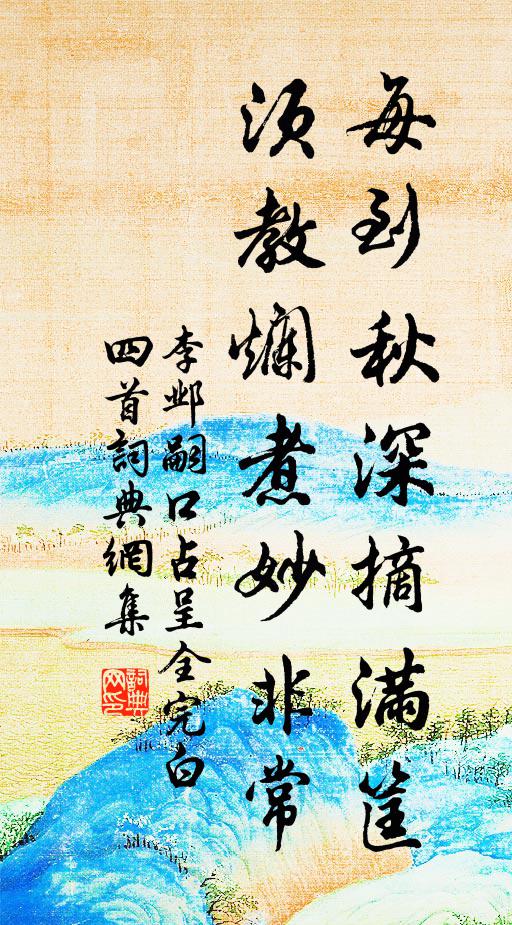 每到秋深摘满筐
须教烂煮妙非常
李邺嗣口占呈全完白
四首詞典網集
詞典网印